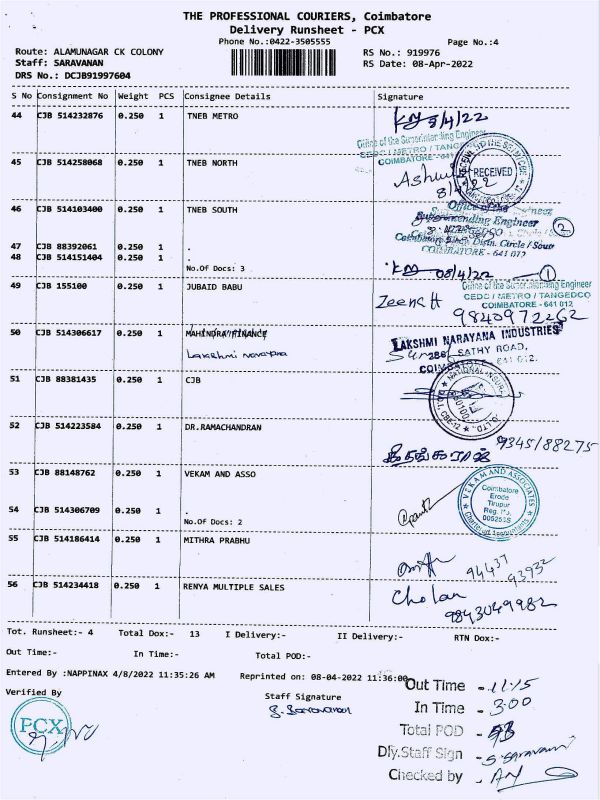 THE PROFESSIONAL COURIERS, Coimbatore
Delivery Runsheet - PCX
Phone No.:0422-3505555
Page No.:4
Route: ALAMUNAGAR CK COLONY
RS No.: 919976
Staff: SARAVANAN
RS Date: 08-Apr-2022
DRS No.: DCJB91997604
S No Consignment No Weight PCS Consignee Details Signature
44 CJB 514232876 0.250 1 TNEB METRO
8/4/22
Office of the Superintending Engineer
CEDC / METRO / TANGEDCO
COIMBATORE - 641 012
45 CJB 514258068 0.250 1 TNEB NORTH
RECEIVED
8/4/22
46 CJB 514103400 0.250 1 TNEB SOUTH
Office of the
Superintending Engineer
Coimbatore Elect. Distn. Circle / South
COIMBATORE - 641 012
2
47 CJB 88392061 0.250 1 .
48 CJB 514151404 0.250 1 .
No.Of Docs: 3
08/4/22 1
49 CJB 155100 0.250 1 JUBAID BABU
Office of the Superintending Engineer
CEDC / METRO / TANGEDCO
COIMBATORE - 641 012
Zeena H
9840972262
50 CJB 514306617 0.250 1 MAHINDRA FINANCE
Lakshmi narayana
LAKSHMI NARAYANA INDUSTRIES
286, SATHY ROAD,
COIMBATORE - 641 012.
51 CJB 88381435 0.250 1 CJB
NATIONAL INSURANCE
52 CJB 514223584 0.250 1 DR.RAMACHANDRAN
9345188275
53 CJB 88148762 0.250 1 VEKAM AND ASSO
VEKAM AND ASSOCIATES
Coimbatore
Erode
Tirupur
Reg. No.
005251S
Chartered Accountants
54 CJB 514306709 0.250 1 .
No.Of Docs: 2
55 CJB 514186414 0.250 1 MITHRA PRABHU
94437
93932
56 CJB 514234418 0.250 1 RENYA MULTIPLE SALES
Cholan
9843049982
Tot. Runsheet:- 4 Total Dox:- 13 I Delivery:- II Delivery:- RTN Dox:-
Out Time:- In Time:- Total POD:-
Entered By :NAPPINAX 4/8/2022 11:35:26 AM Reprinted on: 08-04-2022 11:36:00
Verified By
Staff Signature
PCX
S. Saravanan
Out Time - 11.15
In Time - 3.00
Total POD -
Dly.Staff Sign - S. Saravanan
Checked by -